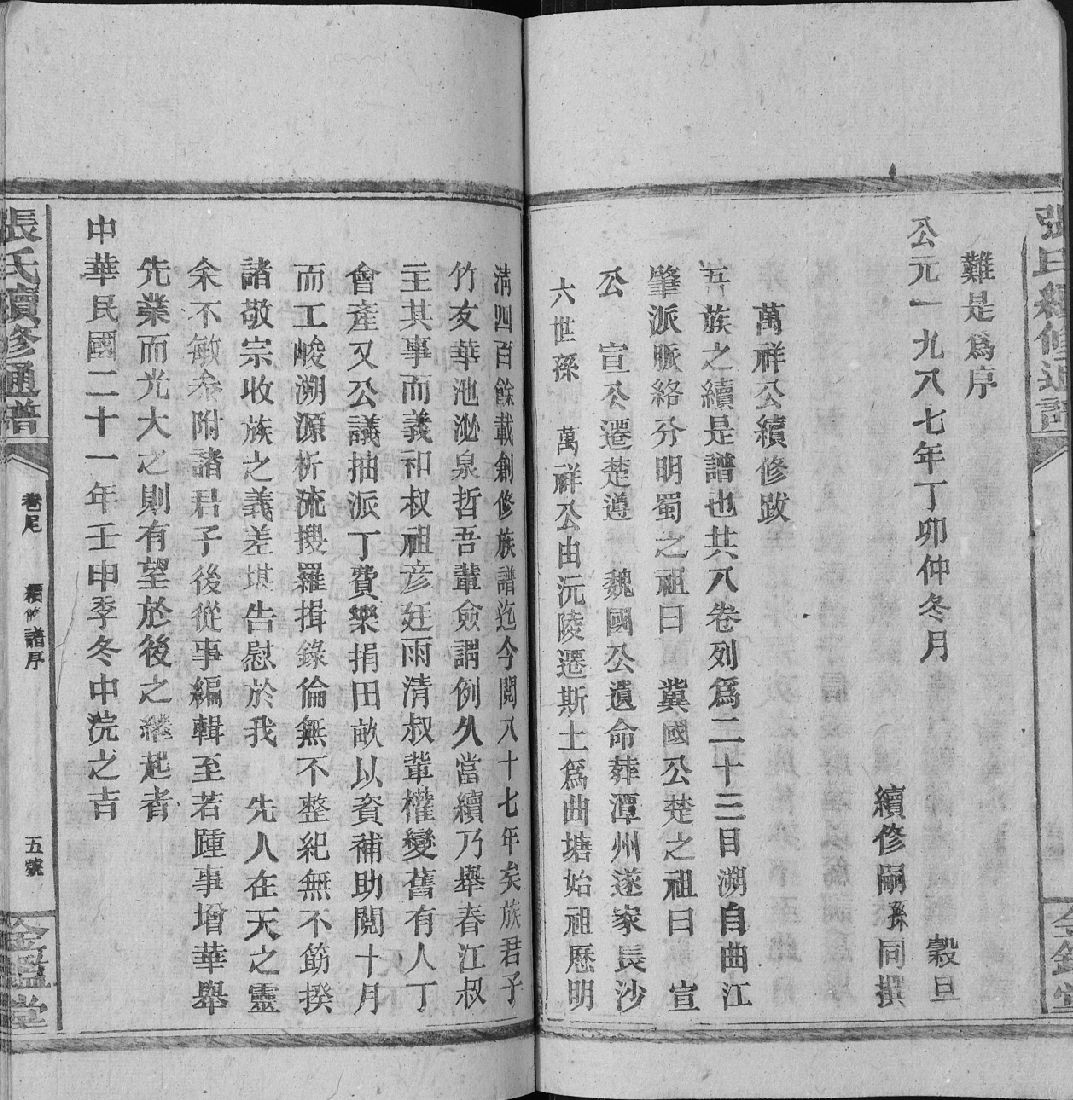 張氏續修通譜
難是爲序
公元一九八七年丁卯仲冬月
穀旦
續修嗣孫同撰
萬祥公續修跋
吾族之續是譜也共八卷列爲二十三目溯自曲江
肇派脈絡分明蜀之祖曰 冀國公楚之祖曰 宣
公 宣公遷楚遵 魏國公遺命葬潭州遂家長沙
六世孫 萬祥公由沅陵遷斯土爲曲塘始祖歷明
清四百餘載創修族譜迄今閱八十七年矣族君子
竹友華池泌泉哲吾輩僉謂例久當續乃舉春江叔
主其事而義和叔祖彥廷雨清叔輩權變舊有人丁
會產又公議抽派丁費樂捐田畝以資補助閱十月
而工峻溯源析流搜羅揖錄倫無不整紀無不節揆
諸敬宗收族之義差堪告慰於我 先人在天之靈
余不敏叅附諸君子後從事編輯至若踵事增華舉
先業而光大之則有望於後之繼起者
中華民國二十一年壬申季冬中浣之吉
張氏續修通譜
卷尾
續修譜序
五號
金鑑堂